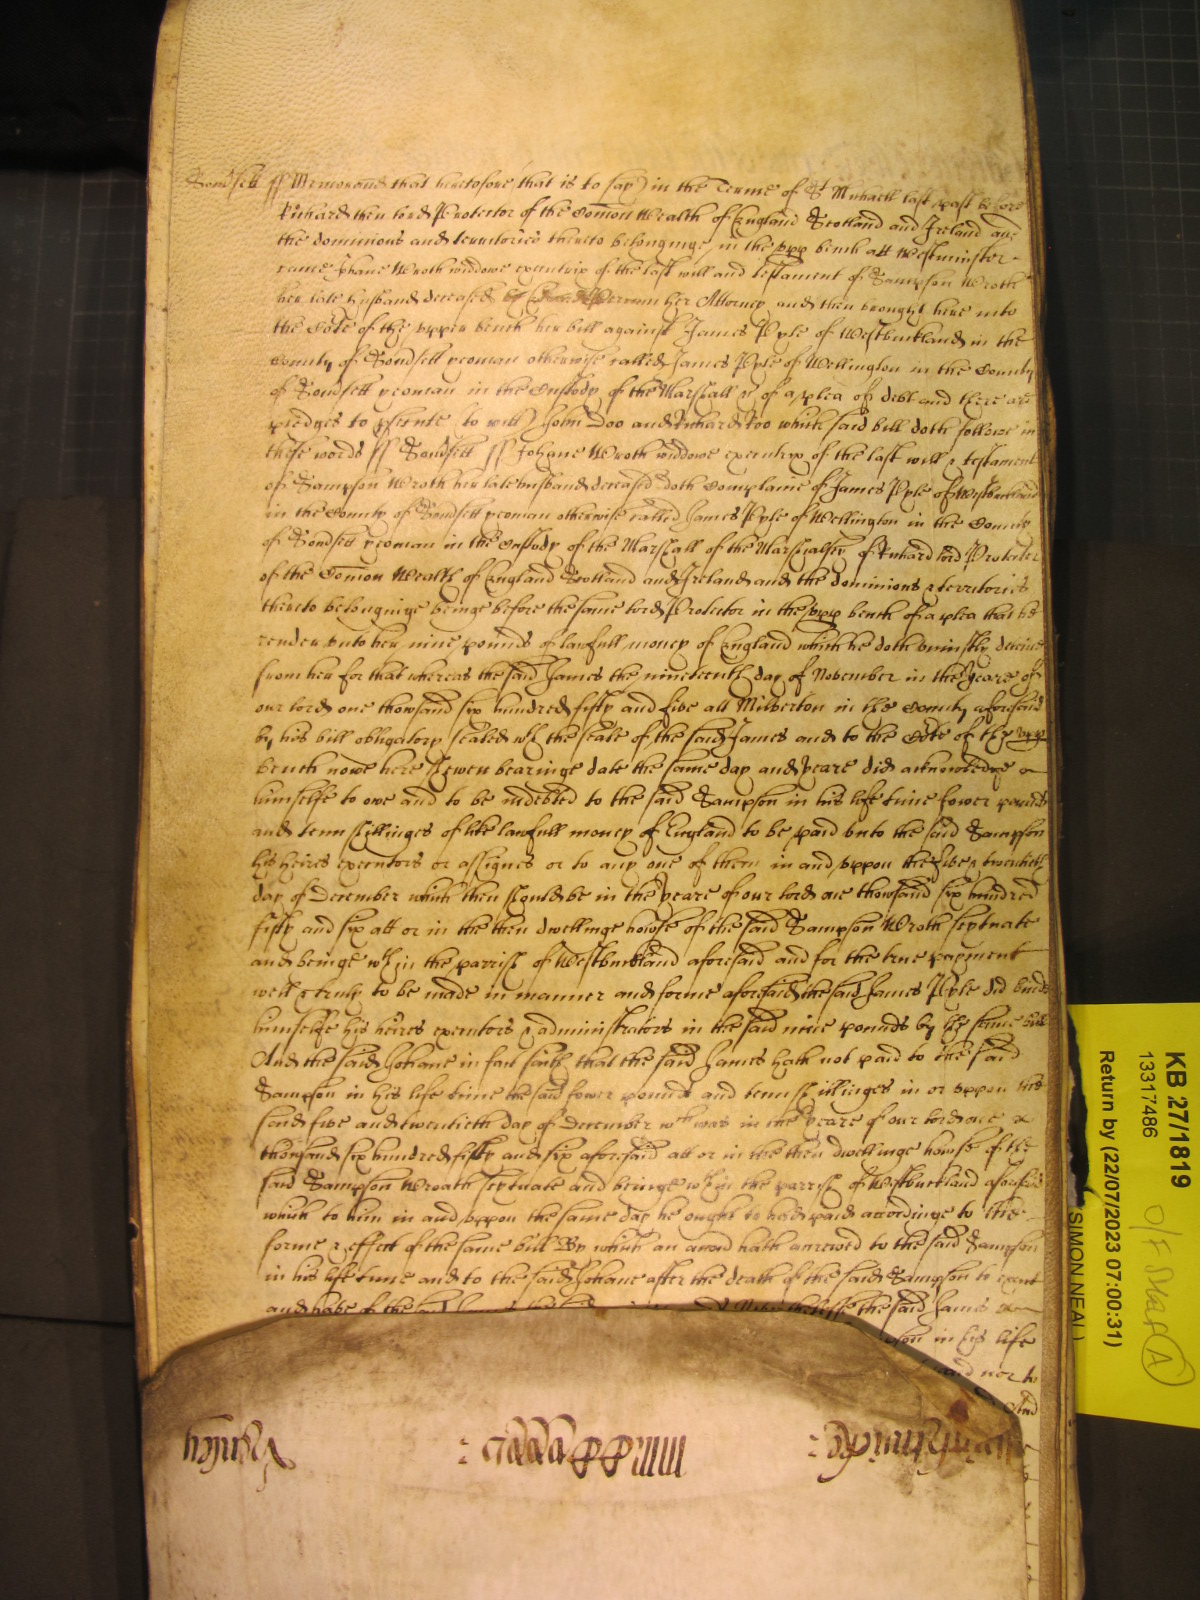 Somsett ss Memorand that heretofore that is to say in the Terme of St Michaell last past before
Richard then lord Protector of the Comon Wealth of England Scotland and Ireland and
the dominions and territories thereto belonginge in the upp bench att Westminster
came Johane Wroth widdowe executrix of the last will and testament of Sampson Wroth
her late husband deceased by her Attorney and then brought here into
the Cort of the upper bench her bill against James Pyle of Westbuckland in the
County of Somsett yeoman otherwise called James Pyle of Wellington in the County
of Somsett yeoman in the Custody of the Marshall &c of a plea of debt and there are
pledges to psecute to witt John Doo and Richard Roo which said bill doth followe in
these words ss Somsett ss Johane Wroth widdowe executrix of the last will & testament
of Sampson Wroth her late husband deceased doth Complaine of James Pyle of Westbuckland
in the County of Somsett yeoman otherwise called James Pyle of Wellington in the County
of Somsett yeoman in the Custody of the Marshall of the Marshalsey of Richard lord Protector
of the Comon Wealth of England Scotland and Ireland and the dominions & territories
thereto belonginge beinge before the same lord Protector in the upp bench of a plea that he
render unto her nine pounds of lawfull money of England which he doth uniustly deteine
from her for that whereas the said James the nineteenth day of November in the yeare of
our lord one thowsand six hundred fifty and five att Milverton in the County aforesaid
by his bill obligatory sealed wth the seale of the said James and to the Cort of the upp
bench nowe here shewen bearinge date the same day and yeare did acknowledge
himselfe to owe and to be indebted to the said Sampson in his life time fower pounds
and tenn shillinges of like lawfull money of England to be paid unto the said Sampson
his heires executors or assignes or to any one of them in and uppon the five & twentieth
day of December which then should be in the yeare of our lord one thowsand six hundred
fifty and six att or in the then dwellinge howse of the said Sampson Wroth scytuate
and beinge wthin the parrish of Westbuckland aforesaid and for the true payment
well & truly to be made in manner and forme aforesaid the said James Pyle did binde
himselfe his heires executors & administrators in the said nine pounds by the same bill
And the said Johane in fact saith that the said James hath not paid to the said
Sampson in his life time the said fower pounds and tenn shillinges in or uppon the
said five and twentieth day of December wch was in the yeare of our lord one
thowsand six hundred fifty and six aforesaid att or in the then dwellinge howse of the
said Sampson Wroath scytuate and beinge wthin the parrish of Westbuckland aforesaid
which to him in and uppon the same day he ought to have paid accordinge to the
forme & effect of the same bill By which an accon hath accrewed to the said Sampson
in his life time and to the said Johane after the death of the said Sampson to exact
and have of the said James Neverthelesse the said James
in his life
nor to
And
KB 27/1819
13317486
Return by (22/07/2023 07:00:31)
SIMON NEAL
O/F
A